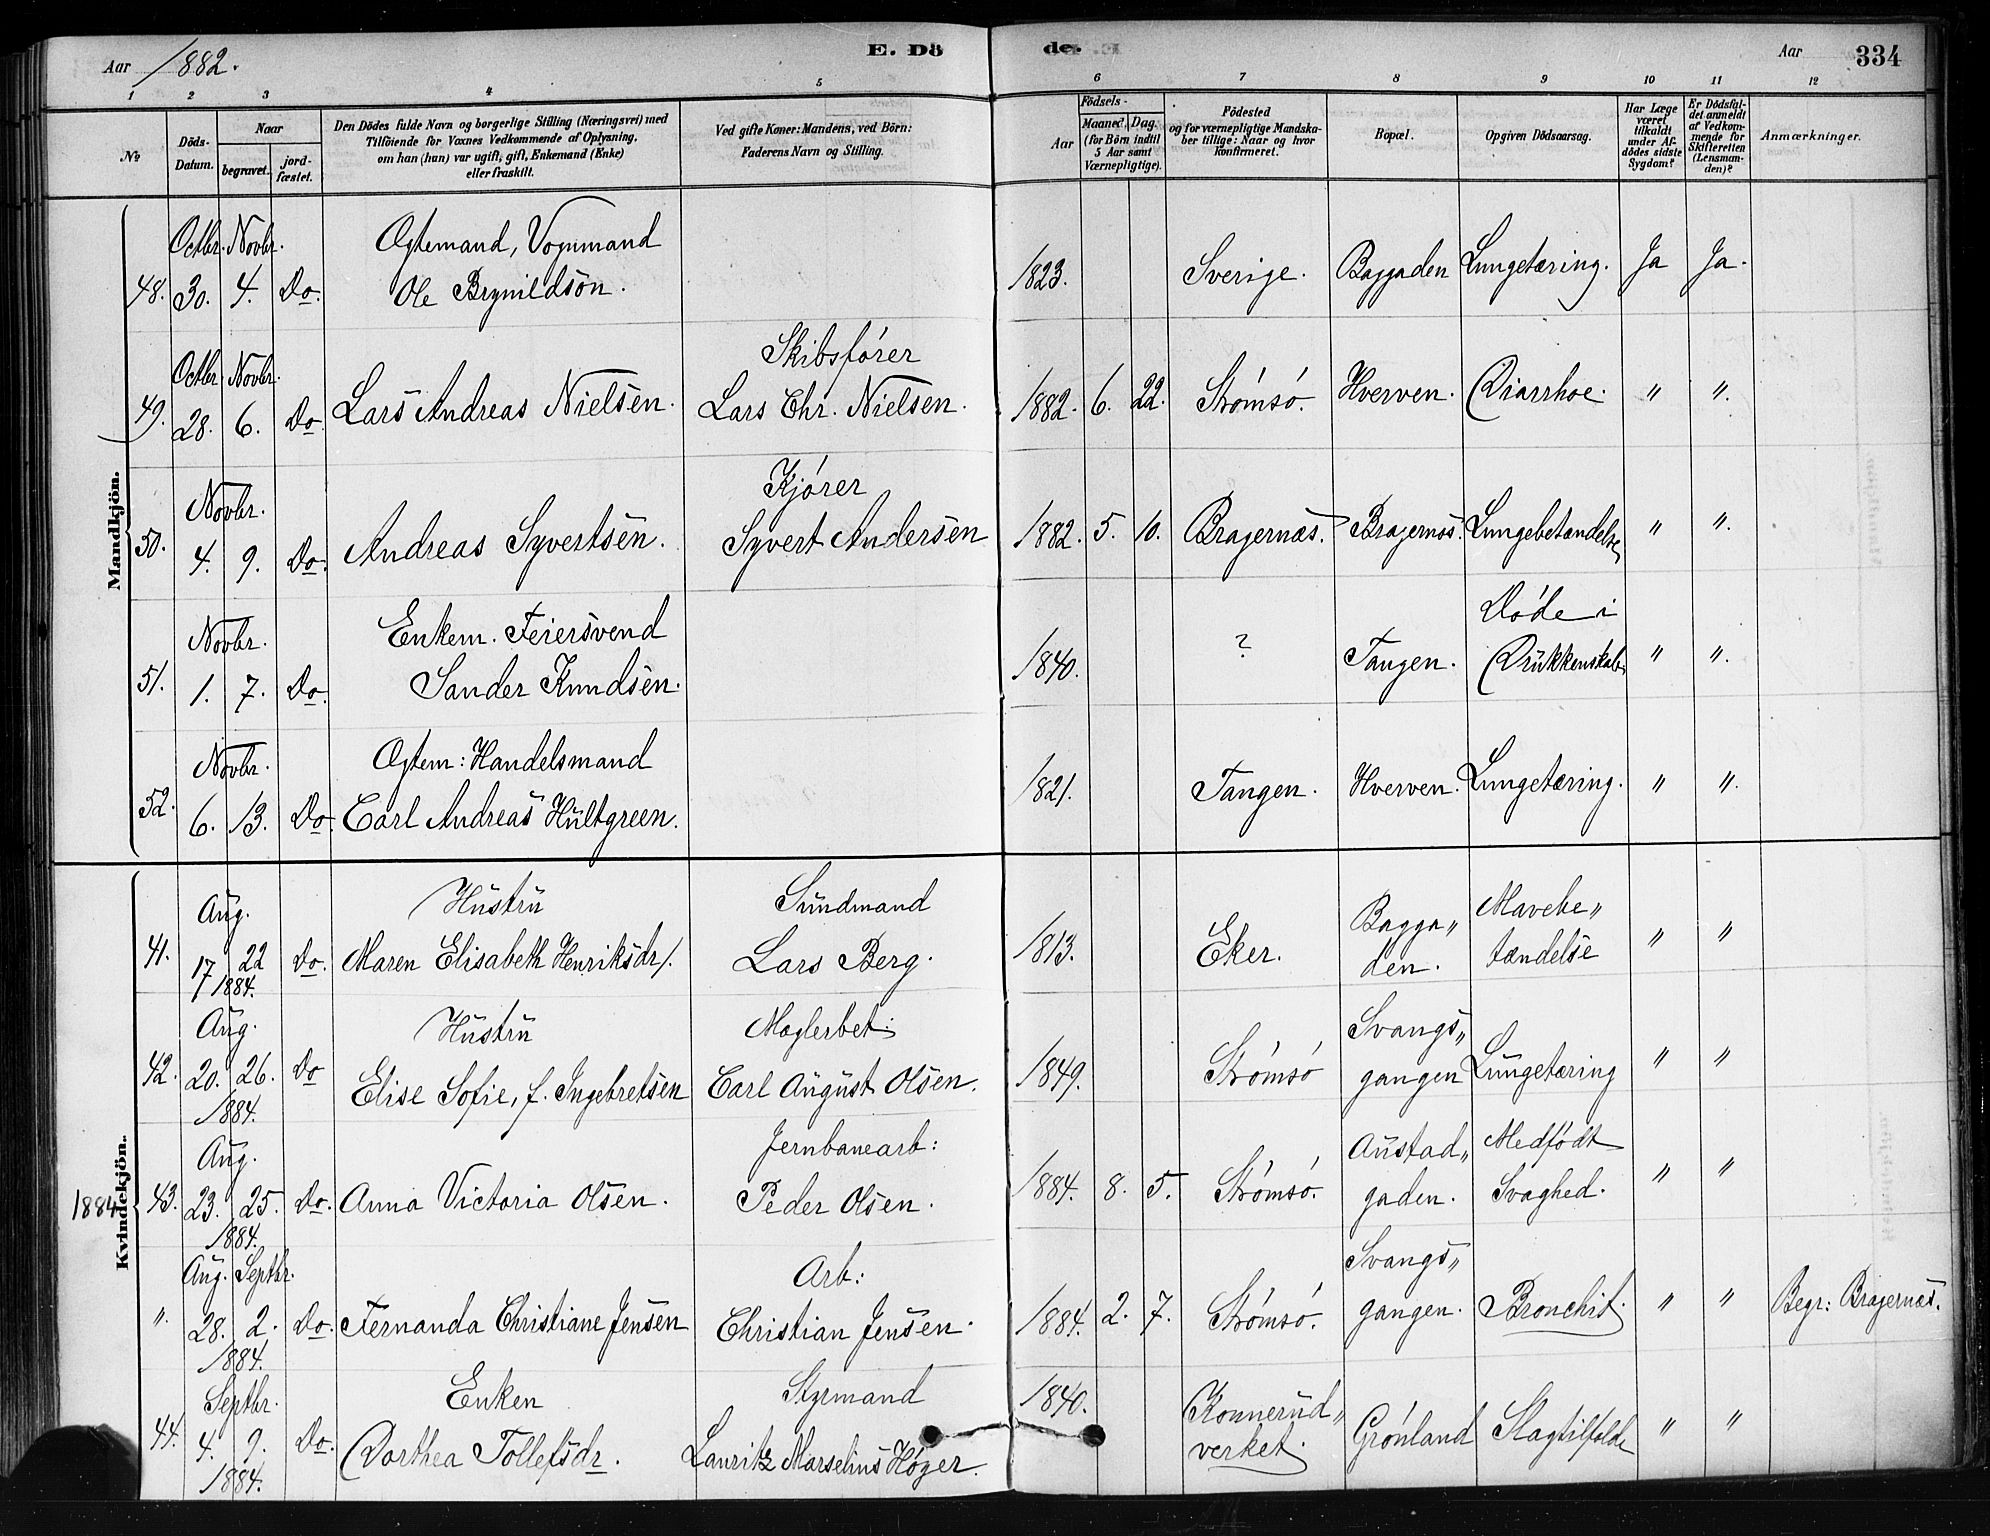 Aar 1882. E. Dö
de. Aar 334
1 2 3 4 5 6 7 8 9 10 11 12
№ Döds-Datum. Naar begravet. jord-fæstet. Den Dödes fulde Navn og borgerlige Stilling (Næringsvei) med Tilföiende for Voxnes Vedkommende af Oplysning, om han (hun) var ugift, gift, Enkemand (Enke) eller fraskilt. Ved gifte Koner: Mandens, ved Börn: Faderens Navn og Stilling. Aar Födsels- Maaned. Dag. (for Börn indtil 5 Aar samt Værnepligtige). Födested og for værnepligtige Mandskaber tillige: Naar og hvor konfirmeret. Bopæl. Opgiven Dödsaarsag. Har Læge været tilkaldt under Afdödes sidste Sygdom? Er Dödsfaldet anmeldt af Vedkommende for Skifteretten (Lensmanden)? Anmærkninger.
Mandkjön.
Octbr. Novbr. Ægtemand, Vognmand
48. 30. 4. Do. Ole Brynildsön. 1823. Sverige. Baggaden Lungetæring. Ja Ja.
Octbr. Novbr. Skibsfører
49. 28. 6. Do Lars Andreas Nielsen. Lars Chr. Nielsen. 1882. 6. 22. Strømsø. Hverven. Diarrhoe. " ".
Novbr. Kjører
50. 4. 9. Do. Andreas Syvertsen. Syvert Andersen 1882. 5. 10. Bragernæs. Bragernæs. Lungebetændelse " ".
Novbr. Enkem. Feiersvend Døde i
51. 1. 7. Do. Sander Knudsen. 1840. ? Tangen. Drukkenskab " ".
Novbr. Ægtem: Handelsmand
52. 6. 13. Do. Carl Andreas Hultgreen. 1821. Tangen. Hverven. Lungetæring. " ".
Kvindekjön.
Aug. Hustru Sundmand Bagga„ Mavebe„
41. 17 22 Do. Maren Elisabeth Henriksdr/. Lars Berg. 1813. Eker. den. tændelse " "
1884.
Aug. Hustru Mæglerbet: Svangs„
42. 20. 26. Do Elise Sofie, f. Ingebretsen Carl August Olsen. 1849. Strømsø gangen Lungetæring " "
1884.
Aug. Jernbanearb: Austad„ Medfødt
1884 43. 23. 25. Do. Anna Victoria Olsen. Peder Olsen. 1884. 8. 5. Strømsø. gaden. Svaghed. " "
1884.
Aug. Septbr. Arb: Svangs„
" 28. 2. Do. Fernanda Christiane Jensen Christian Jensen. 1884. 2. 7. Strømsø. gangen. Bronchit. " " Begr: Bragernæs.
1884.
Septbr. Enken Styrmand 1840. Konnerud„
44. 4. 9. Do. Dorthea Tollefsdr. Lauritz Marselius Høyer. verket. Grønland Slagtilfælde " "
1884.